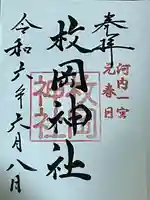 奉拝
河内一宮
元春日
枚岡神社
枚岡神社
令和六年六月八日